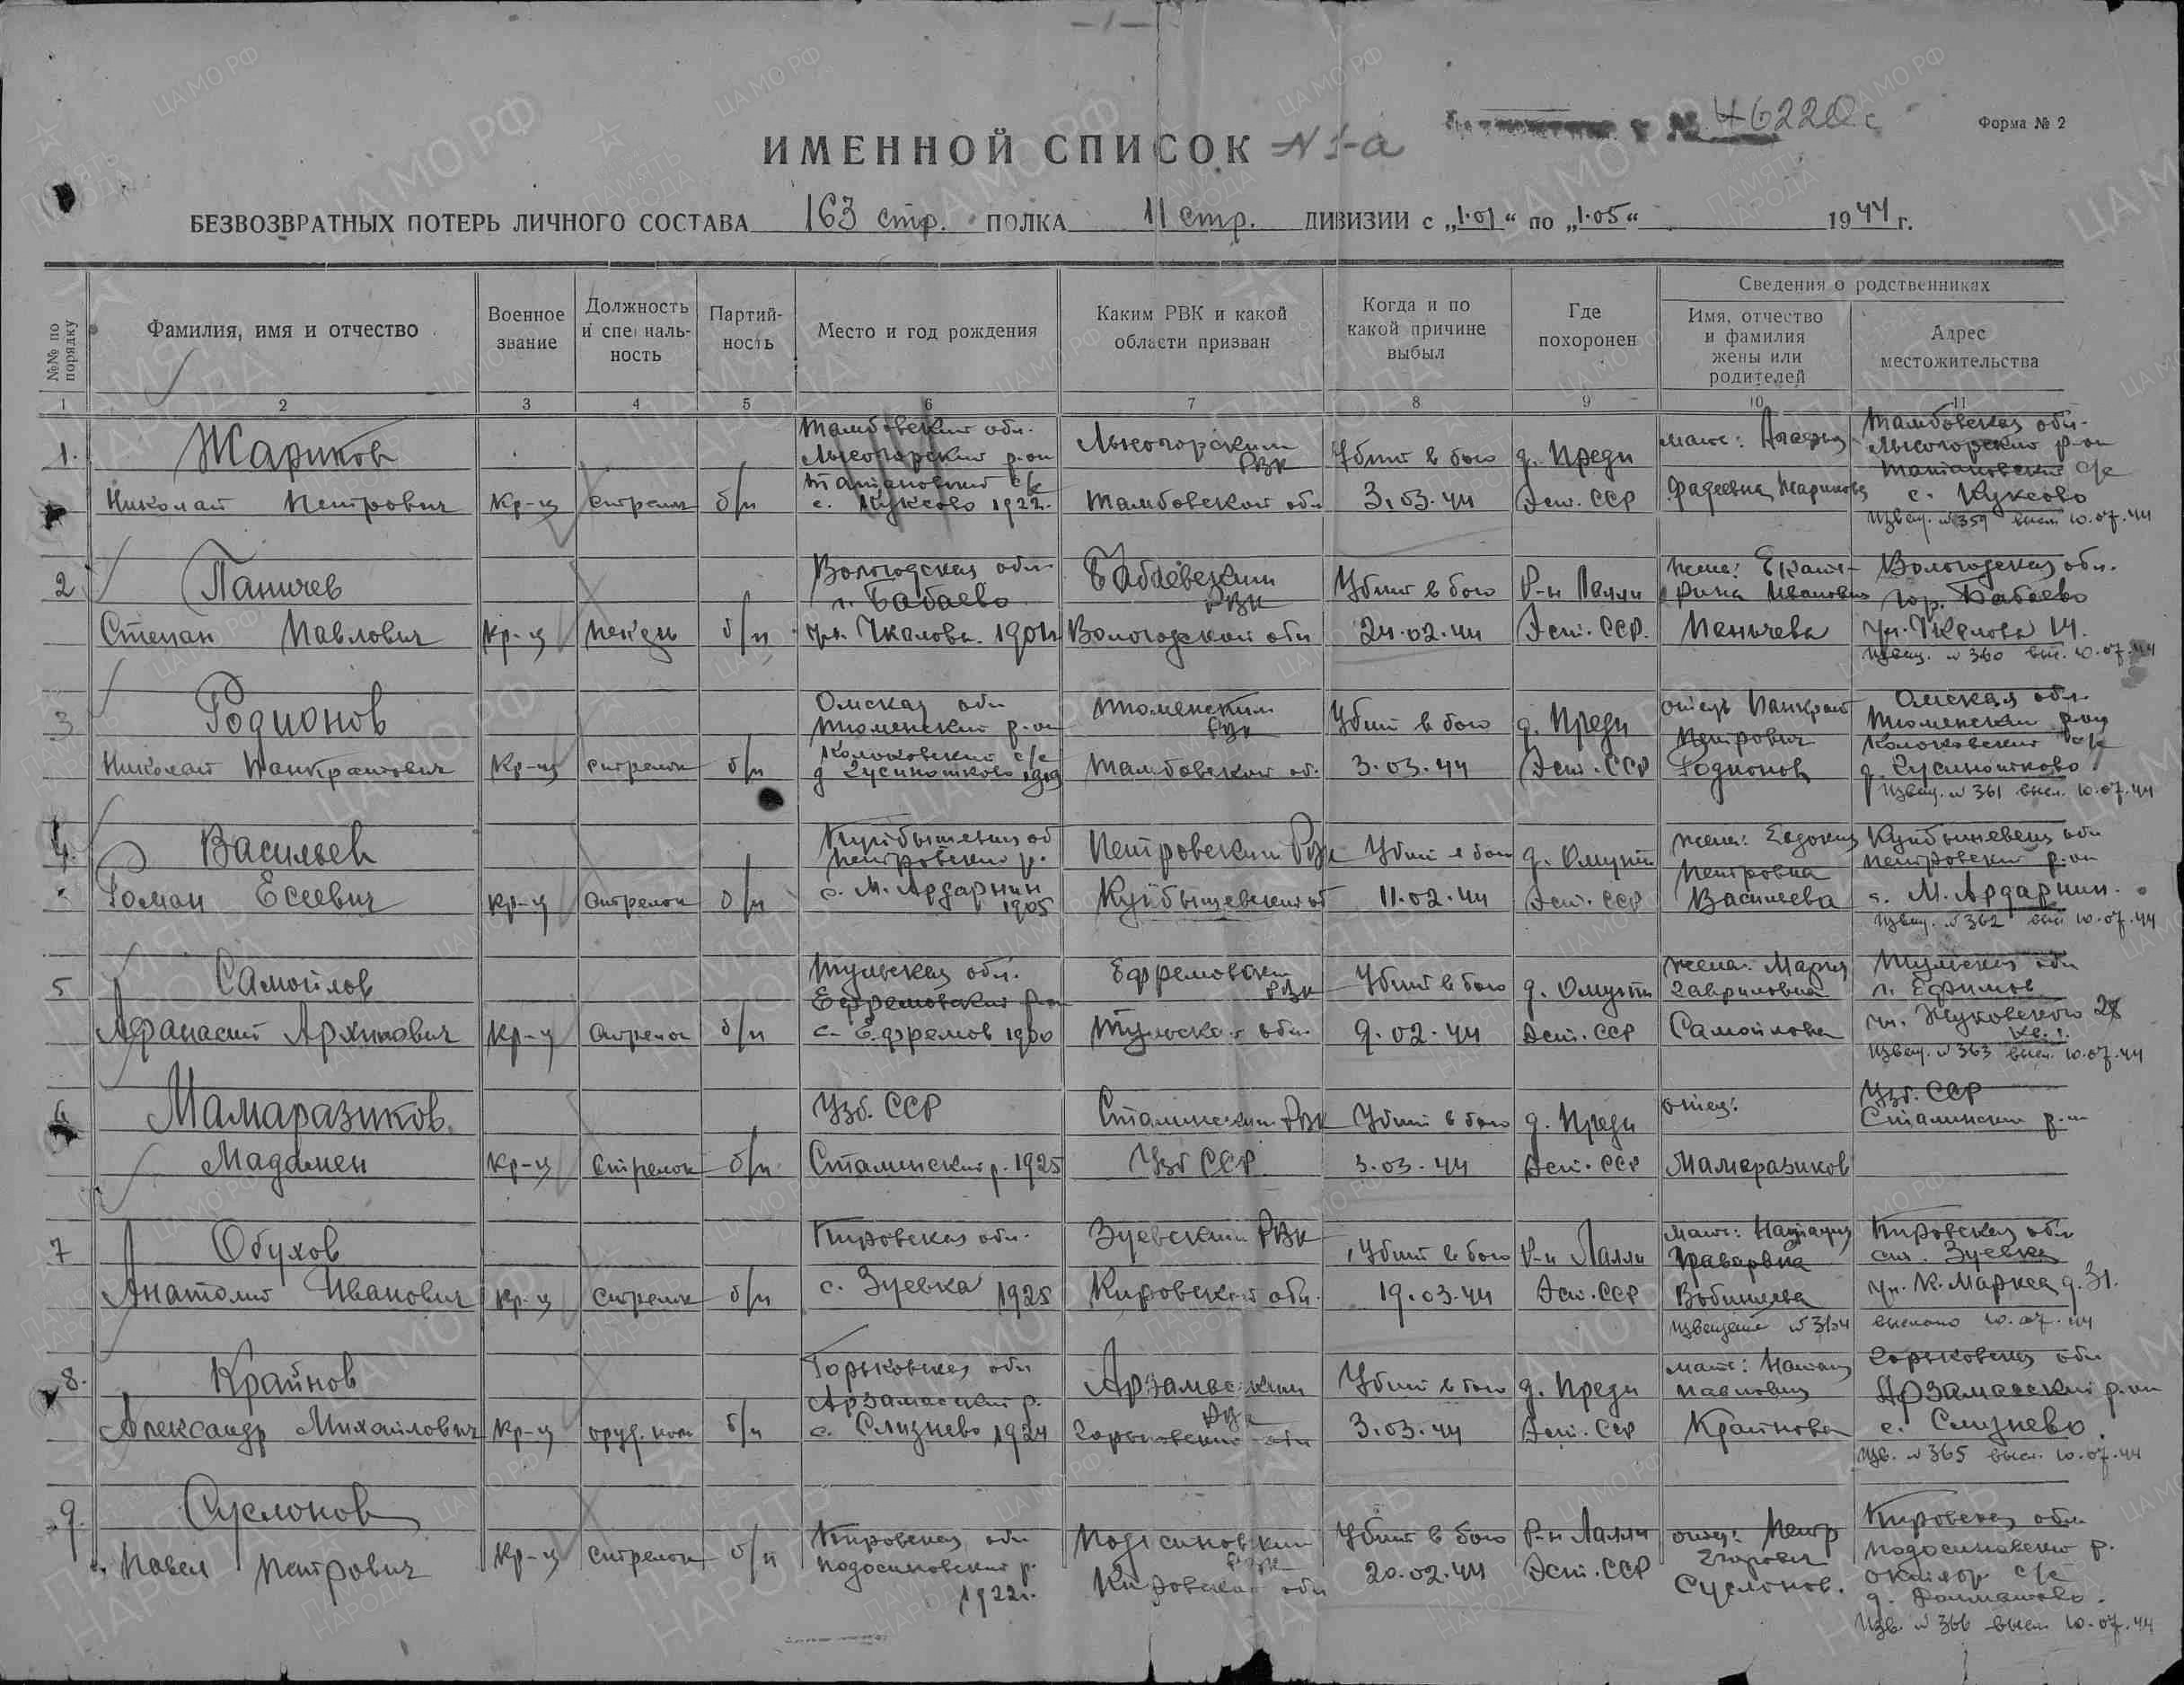 — 1 —
№ 46220с
Форма № 2
ИМЕННОЙ СПИСОК N 1-а
БЕЗВОЗВРАТНЫХ ПОТЕРЬ ЛИЧНОГО СОСТАВА 163 стр. ПОЛКА 11 стр. ДИВИЗИИ с „1.01“ по „1.05“ 1944 г.
№№ по порядку
Фамилия, имя и отчество
Военное звание
Должность и специальность
Партийность
Место и год рождения
Каким РВК и какой области призван
Когда и по какой причине выбыл
Где похоронен
Сведения о родственниках
Имя, отчество и фамилия жены или родителей
Адрес местожительства
1 2 3 4 5 6 7 8 9 10 11
1. Жариков
Николай Петрович Кр-ц стрелок б/п
Тамбовский обл.
Лысогорский р-он
Татановский с/с
с. Куксово 1922.
Лысогорским РВК
Тамбовской обл
Убит в бою
3.03.44
д. Преди
Эст. ССР
мать: Агафья
Фадеевна Жарикова
Тамбовская обл.
Лысогорский р-он
Татановский с/с
с. Куксово
Извещ. №359 высл 10.07.44
2 Паничев
Степан Павлович Кр-ц б/п
Вологодская обл
г. Бабаево
ул. Чкалова 1904
Бабаевским РВК
Вологодской обл
Убит в бою
24.02.44
Р-н Лалли
Эст. ССР.
жена: Екатерина Ивановна
Паничева
Вологодская обл.
гор. Бабаево
ул. Чкалова 14.
Извещ. №360 выс. 10.07.44
3 Родионов
Николай Панкратович Кр-ц стрелок б/п
Омская обл
Тюменский р-он
с/с
д Гусиношково 1919
Тюменским РВК
Тамбовской об.
Убит в бою
3.03.44
д. Преди
Эст. ССР
отец Панкрат
Петрович
Родионов
Омская обл.
Тюменский р-он
с/с
д. Гусиношково
Извещ. №361 высл. 10.07.44
4. Васильев
Роман Есеевич Кр-ц стрелок б/п
Куйбышевская об
Петровский р.
с. М. Ардарнин
1905
Петровским РВК
Куйбышевской об
Убит в бою
11.02.44
д. Омути
Эст. ССР
жена: Евдокия
Петровна
Васильева
Куйбышевская обл
Петровский р-он
с. М. Ардарнин.
Извещ. №362 выс. 10.07.44
5 Самойлов
Афанасий Архипович Кр-ц стрелок б/п
Тульская обл.
Ефремовский р-он
с. Ефремов 1900
Ефремовским РВК
Тульской обл.
Убит в бою
9.02.44
д. Омути
Эст. ССР
жена: Мария
Гавриловна
Самойлова
Тульская обл
г. Ефремов
ул. Жуковского 28
кв. 1.
Извещ. №363 высл. 10.07.44
6 Мамаразиков
Мадамен Кр-ц Стрелок б/п
Узб. ССР
Сталинский р. 1925
Сталинским РВК
Узб ССР
Убит в бою
3.03.44
д. Преди
Эст. ССР
отец:
Мамаразиков
Узб. ССР
Сталинский р-он
7 Обухов
Анатолий Иванович Кр-ц Стрелок б/п
Кировская обл.
с. Зуевка 1925
Зуевским РВК
Кировской обл.
Убит в бою
19.03.44
Р-н Лалли
Эст. ССР
мать: Наталия
Кировская обл
ст. Зуевка
ул. К. Маркса д. 31.
Извещение №364 выслано 10.07.44
8. Крайнов
Александр Михайлович Кр-ц оруд. ном б/п
Горьковская обл
Арзамасский р.
с. Слизнево 1924
Арзамасским РВК
Горьковской обл
Убит в бою
3.03.44
д. Преди
Эст. ССР
мать:
Павловна
Крайнова
Горьковская обл
Арзамасский р-он
с. Слизнево.
Изв. №365 высл. 10.07.44
9. Суслонов
Павел Петрович Кр-ц стрелок б/п
Кировская обл
Подосиновский р.
1922г.
Подосиновским РВК
Кировской обл
Убит в бою
20.02.44
Р-н Лалли
Эст. ССР
отец: Петр
Егорович
Суслонов.
Кировская обл.
Подосиновский р.
с/с
Изв. №366 высл 10.07.44